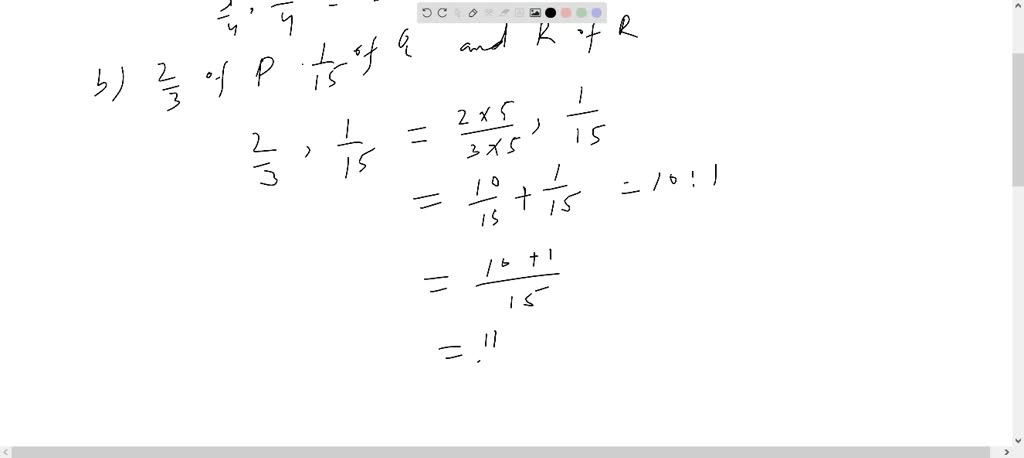 /4, /4 =
b) 2/3 of P . 1/15 of Q and R of R
2/3 , 1/15 = 2×5/3×5 , 1/15
= 10/15 + 1/15 = 10 : 1
= 10+1/15
= . 11